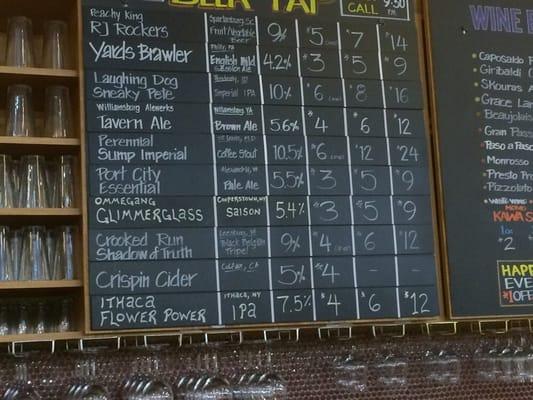 BEER TAP
CALL 9:30
Peachy King
RJ Rockers
Spartanburg SC
Fruit Vegetable
9% 5 7 14
Yards Brawler
English Mild
4.2% 3 5 9
Laughing Dog
Sneaky Pete
Imperial IPA
10% 6 8 16
Williamsburg Alewerks
Tavern Ale
Williamsburg VA
Brown Ale
5.6% 4 6 12
Perennial
Sump Imperial
Coffee Stout
10.5% 6 12 24
Port City
Essential
Alexandria, VA
Pale Ale
5.5% 3 5 9
OMMEGANG
GLIMMERGLASS
COOPERSTOWN, NY
SAISON
5.4% 3 5 9
Crooked Run
Shadow of Truth
Leesburg, VA
Black Belgian
Tripel
9% 4 6 12
Crispin Cider
Colfax, CA
5% 4 - -
ITHACA
FLOWER POWER
ITHACA, NY
IPA
7.5% 4 6 12
WINE
Caposaldo
Giribaldi
SKouras
Grace Lane
Beaujolais
Gran Passo
Paso a Paso
Monrosso
Presto Pro
Pizzolato
KAWA
2
HAPPY
$1 OFF